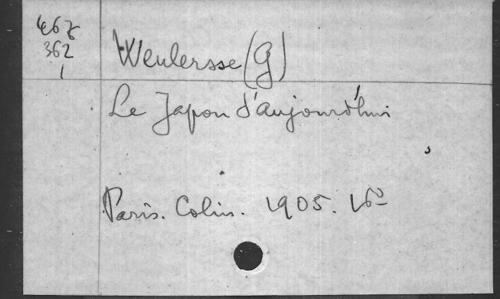 467
362
1
Weulersse (G)
Le Japon d'aujourd'hui
Paris. Colin. 1905. 16º